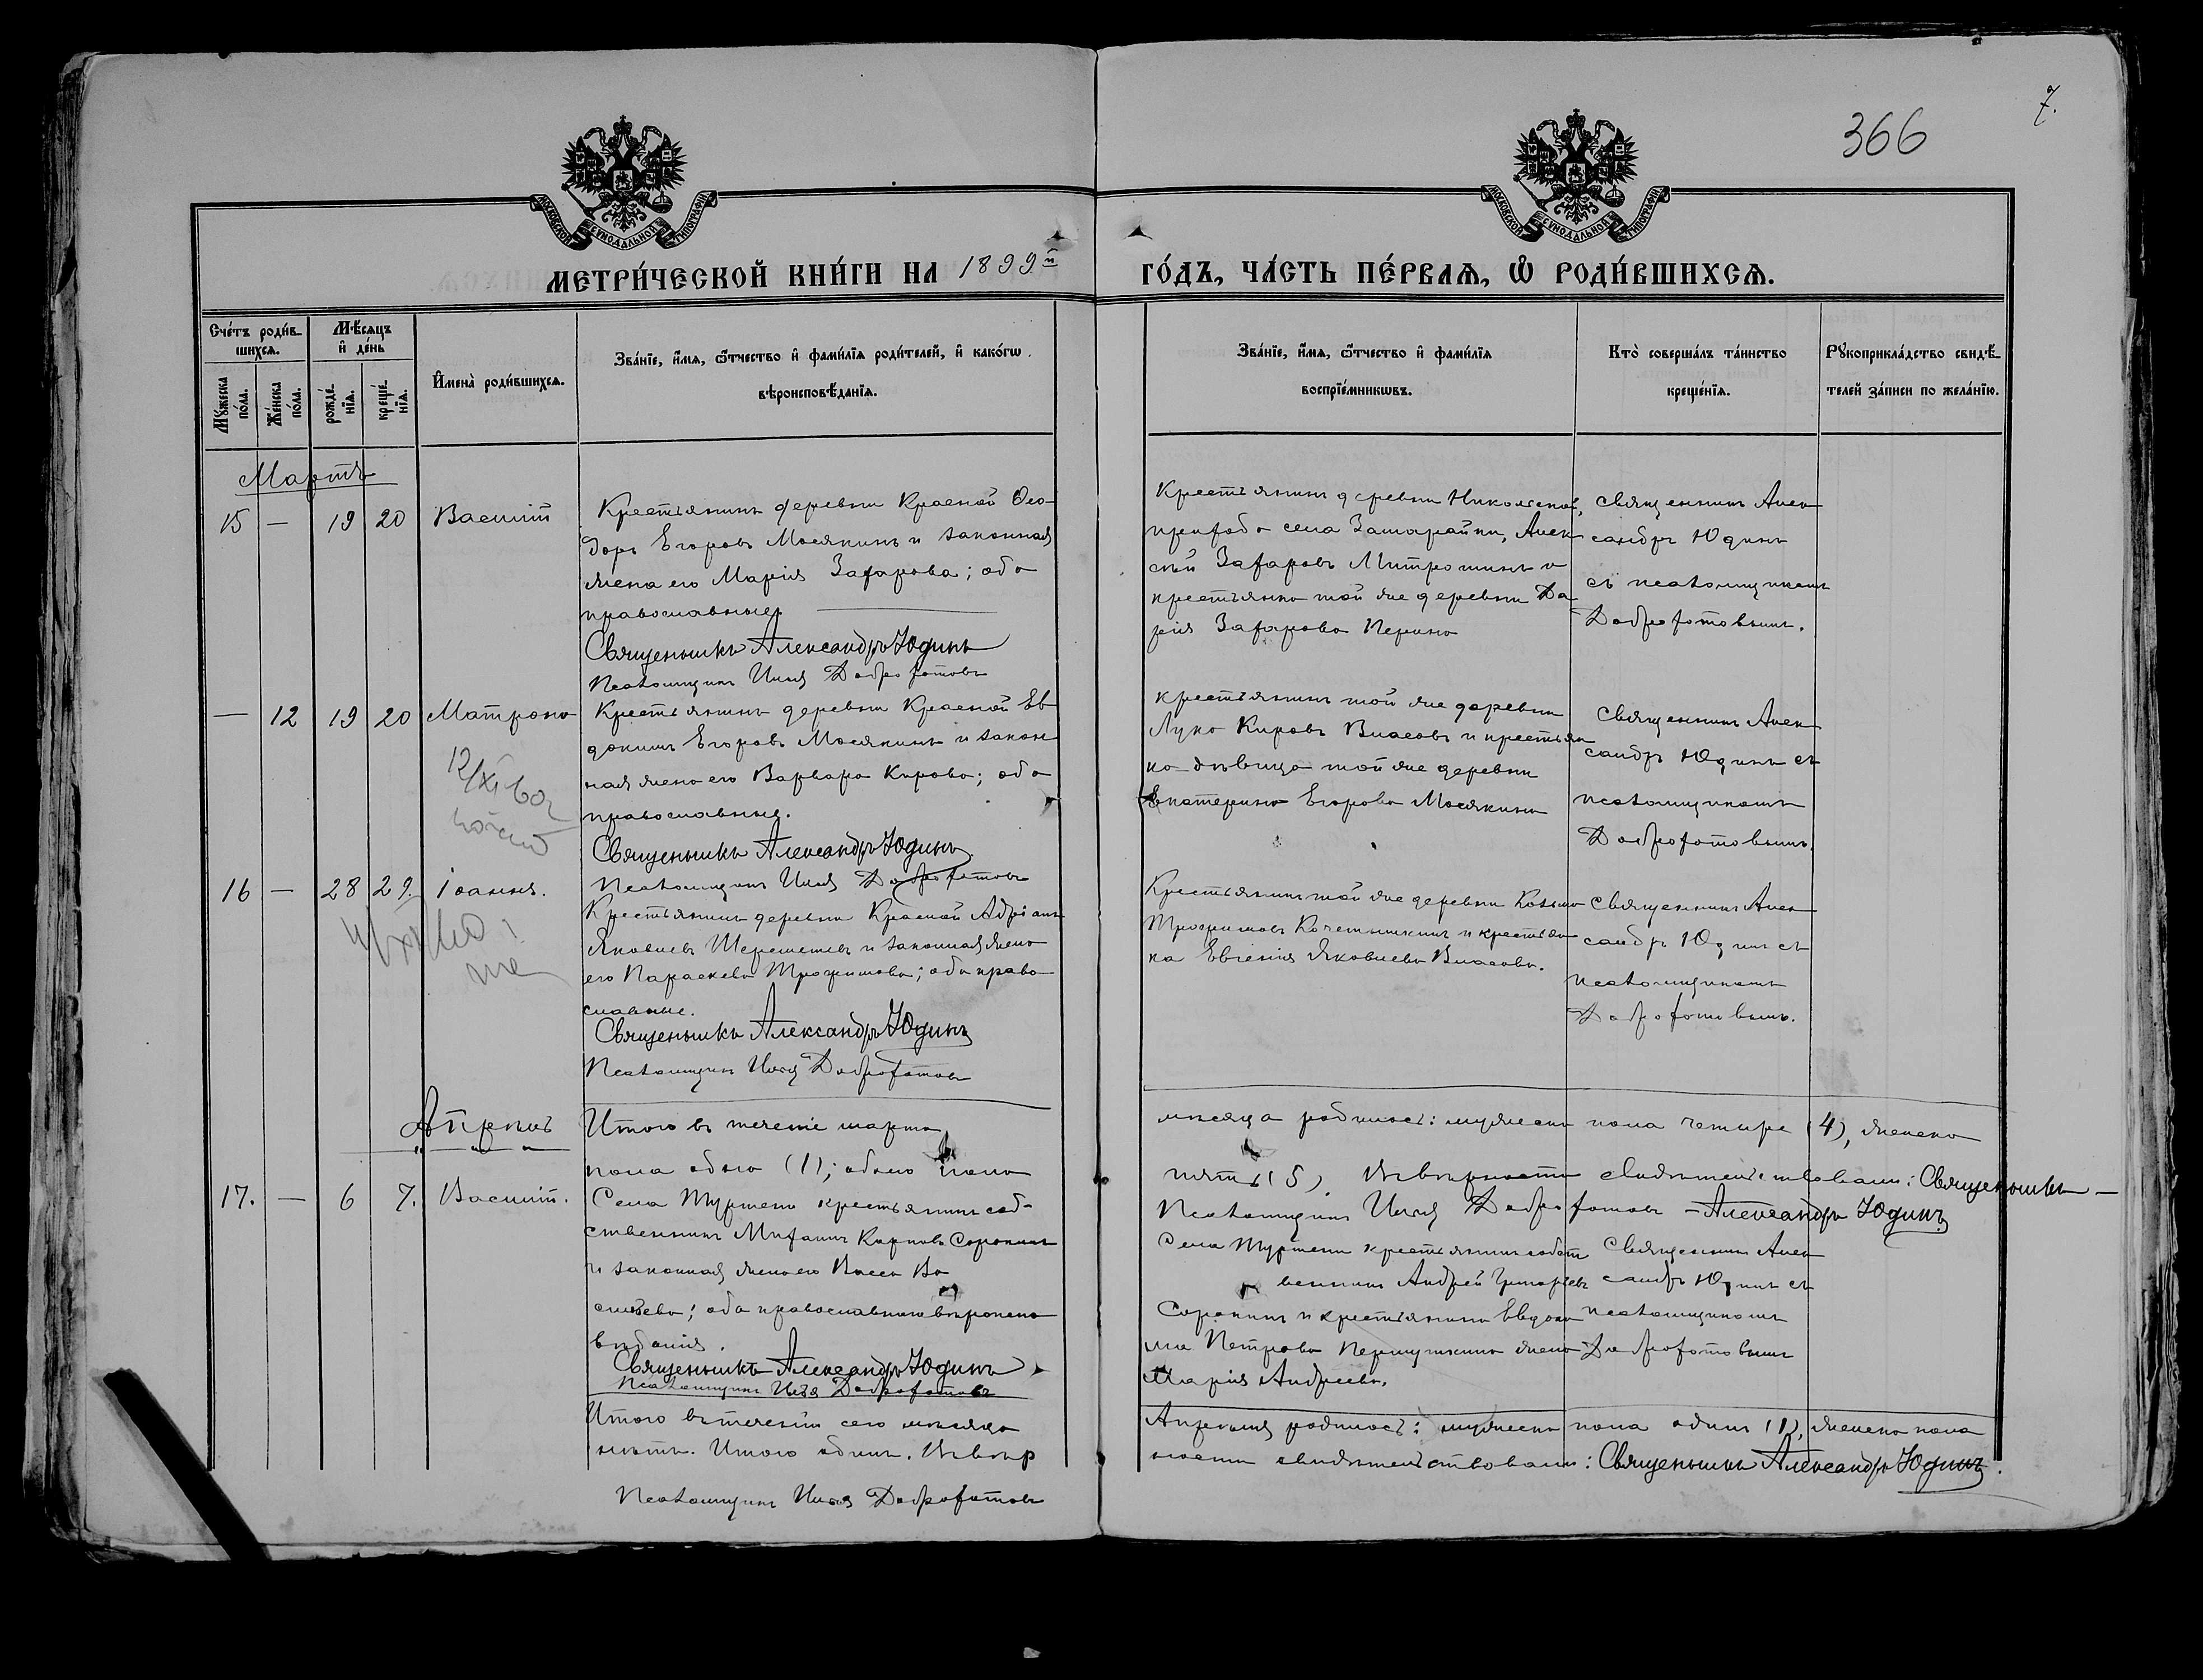 366
7.
МОСКОВСКОЙ СУНОДАЛЬНОЙ ТИПОГРАФІИ
МОСКОВСКОЙ СУНОДАЛЬНОЙ ТИПОГРАФІИ
МЕТРИ́ЧЕСКОЙ КНИ́ГИ НА 1899й
ГО́ДЪ, ЧА́СТЬ ПЕ́РВАѦ, Ѿ РОДИ́ВШИХСѦ.
Сче́тъ роди́в-
шихсѧ.
Мѣ́сѧцъ
и҆ де́нь
Мꙋжеска
по́ла.
Же́нска
по́ла.
рожде́-
нїѧ.
креще́-
нїѧ.
И҆мена̀ роди́вшихсѧ.
Зва́нїе, и҆́мѧ, ѻ҆́тчество и҆ фами́лїѧ роди́телей, и҆ како́гѡ
вѣроисповѣ́данїѧ.
Зва́нїе, и҆́мѧ, ѻ҆́тчество и҆ фами́лїѧ
воспрїе́мникѡвъ.
Кто̀ соверша́лъ та́инство
креще́нїѧ.
Рꙋкоприкла́дство свидѣ́-
телей за́писи по жела́нїю.
Мартъ
15 — 19 20 Василій
Крестьянинъ деревни Красной Ѳео-
доръ Егоровъ Мосякинъ и законная
жена его Марія Захарова; оба
православные.
Священникъ Александръ Юдинъ
Псаломщикъ Илья Доброхотовъ
Крестьянинъ деревни Никольской,
прихода села Замарайки, Алек
сѣй Захаровъ Митрошинъ и
крестьянка той же деревни Да
рія Захарова Перина
Священникъ Алек
сандръ Юдинъ
съ псаломщикомъ
Доброхотовымъ.
— 12 19 20 Матрона
Крестьянинъ деревни Красной Ев
докимъ Егоровъ Мосякинъ и закон
ная жена его Варвара Кирова; оба
православные.
Священникъ Александръ Юдинъ
Псаломщикъ Илья Доброхотовъ
крестьянинъ той же деревни
Лука Кировъ Власовъ и крестьян
ка дѣвица той же деревни
Екатерина Егорова Мосякина
Священникъ Алек
сандръ Юдинъ съ
псаломщикомъ
Доброхотовымъ.
16 — 28 29. Іоаннъ.
Крестьянинъ деревни Красной Адріанъ
Яковлевъ Шереметевъ и законная жена
его Параскева Трофимова; оба право
славные.
Священникъ Александръ Юдинъ
Псаломщикъ Илья Доброхотовъ
Крестьянинъ той же деревни Козьма
Трофимовъ Кочетышкинъ и крестьян
ка Евгенія Яковлева Власова.
Священникъ Алек
сандръ Юдинъ съ
псаломщикомъ
Доброхотовымъ.
Итого въ теченіе марта
мѣсяца родилось: мужеска пола четыре (4), женска
пола одно (1); обоего пола
пять (5). Въ вѣрности свидѣтельствовали: Священникъ —
Псаломщикъ Илья Доброхотовъ — Александръ Юдинъ
Апрѣль
17. — 6 7. Василій.
Села Туртени крестьянинъ соб-
ственникъ Митанинъ Карповъ Сорокинъ
и законная жена его Васса Ва
сильева; оба православнаго вѣроиспо
вѣданія.
Священникъ Александръ Юдинъ
Псаломщикъ Илья Доброхотовъ
Села Туртени крестьянинъ собст
венникъ Андрей Григорьевъ
Сорокинъ и крестьянина Евдоки
ма Петрова Першушкина жена
Марія Андреева.
Священникъ Алек
сандръ Юдинъ съ
псаломщикомъ
Доброхотовымъ
Итого въ теченіи сего мѣсяца
Апрѣля родилось: мужеска пола одинъ (1), женска пола
нѣтъ. Итого одинъ. Въ вѣр
ности свидѣтельствовали: Священникъ Александръ Юдинъ.
Псаломщикъ Илья Доброхотовъ